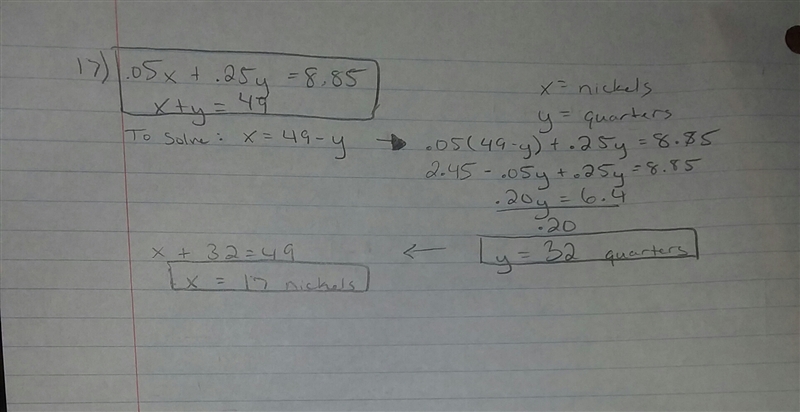 17) .05x + .25y = 8.85
x+y = 49
x = nickels
y = quarters
To solve: x = 49-y → .05(49-y) + .25y = 8.85
2.45 - .05y + .25y = 8.85
.20y = 6.4
.20
y = 32 quarters
← x + 32 = 49
x = 17 nickels